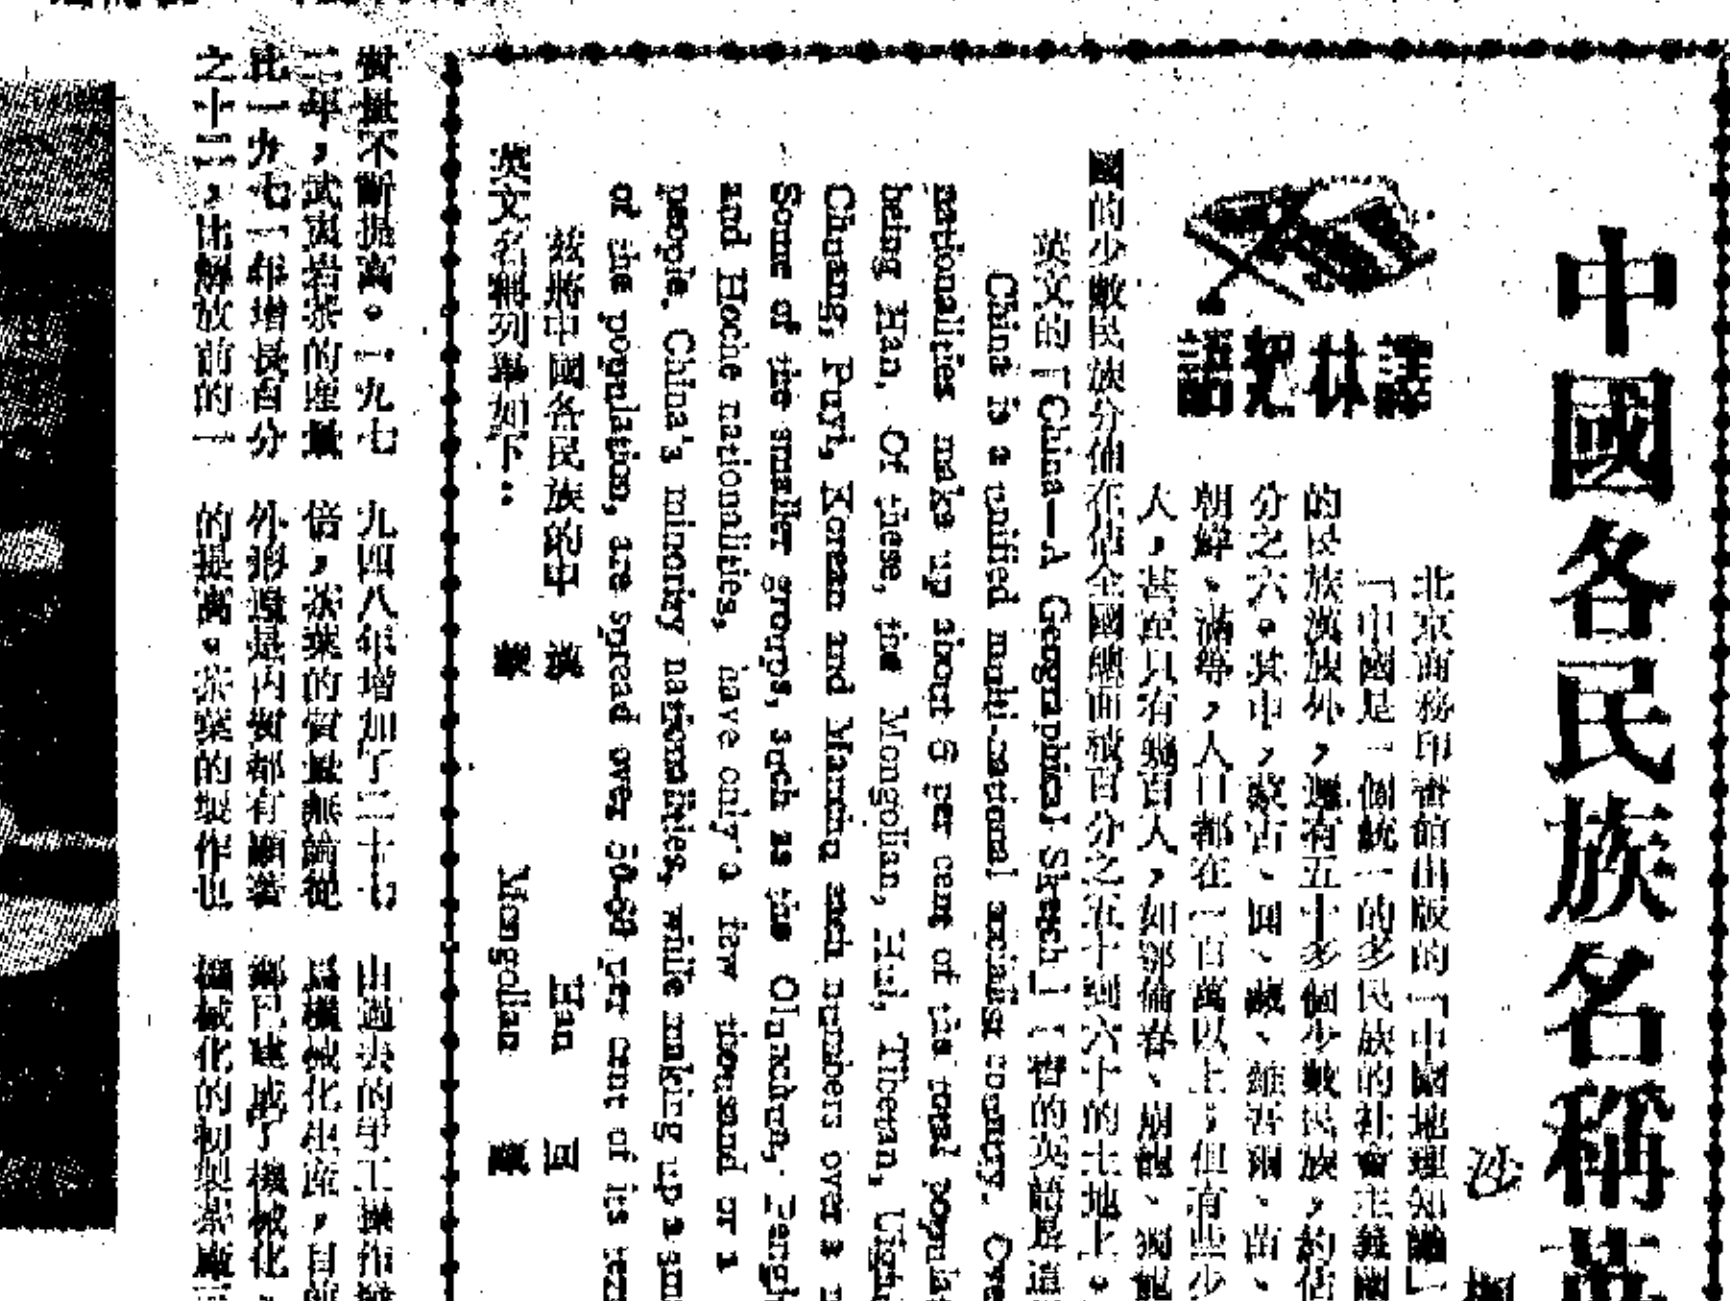 中國各民族名稱英
沙
譯林把語
北京商務印書館出版的「中國地理知識」
「中國是一個統一的多民族的社會主義國
的民族漢族外，還有五十多個少數民族，約佔
分之六。其中，蒙古、回、藏、維吾爾、苗、
朝鮮、滿等，人口都在一百萬以上；但有些少
人，甚至只有幾百人，如鄂倫春、崩龍、獨龍
國的少數民族分佈在佔全國總面積百分之五十到六十的土地上。
英文的「China—A Geographical Sketch」［書的英語是這
China is a unified multi-national socialist country. Ove
nationalities make up about 6 per cent of the total popula
being Han. Of these, the Mongolian, Hui, Tibetan, Uigh
Chuang, Puyi, Korean and Manchu each numbers over a m
Some of the smaller groups, such as the Olunchun, Pengl
and Hoche nationalities, have only a few thousand or a
people. China's minority nationalities, while making up a sm
of the population, are spread over 50-60 per cent of its
茲將中國各民族的中
英文名稱列舉如下：
漢 Han 回
蒙 Mongolian 藏
質量不斷提高。一九七
二年，武夷岩茶的產量
比一九七一年增長百分
之十三，比解放前的一
九四八年增加了二十七
倍，茶葉的質量無論從
外形還是內質都有顯著
的提高。茶葉的製作也
由過去的手工操作
爲機械化生產，目前
鄉已建成了機械化、
機械化的初製茶廠三